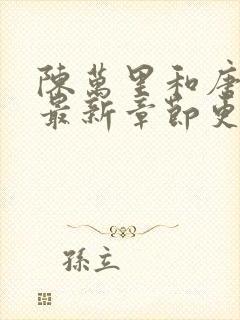 陳萬里和唐
最新章節更
孫立